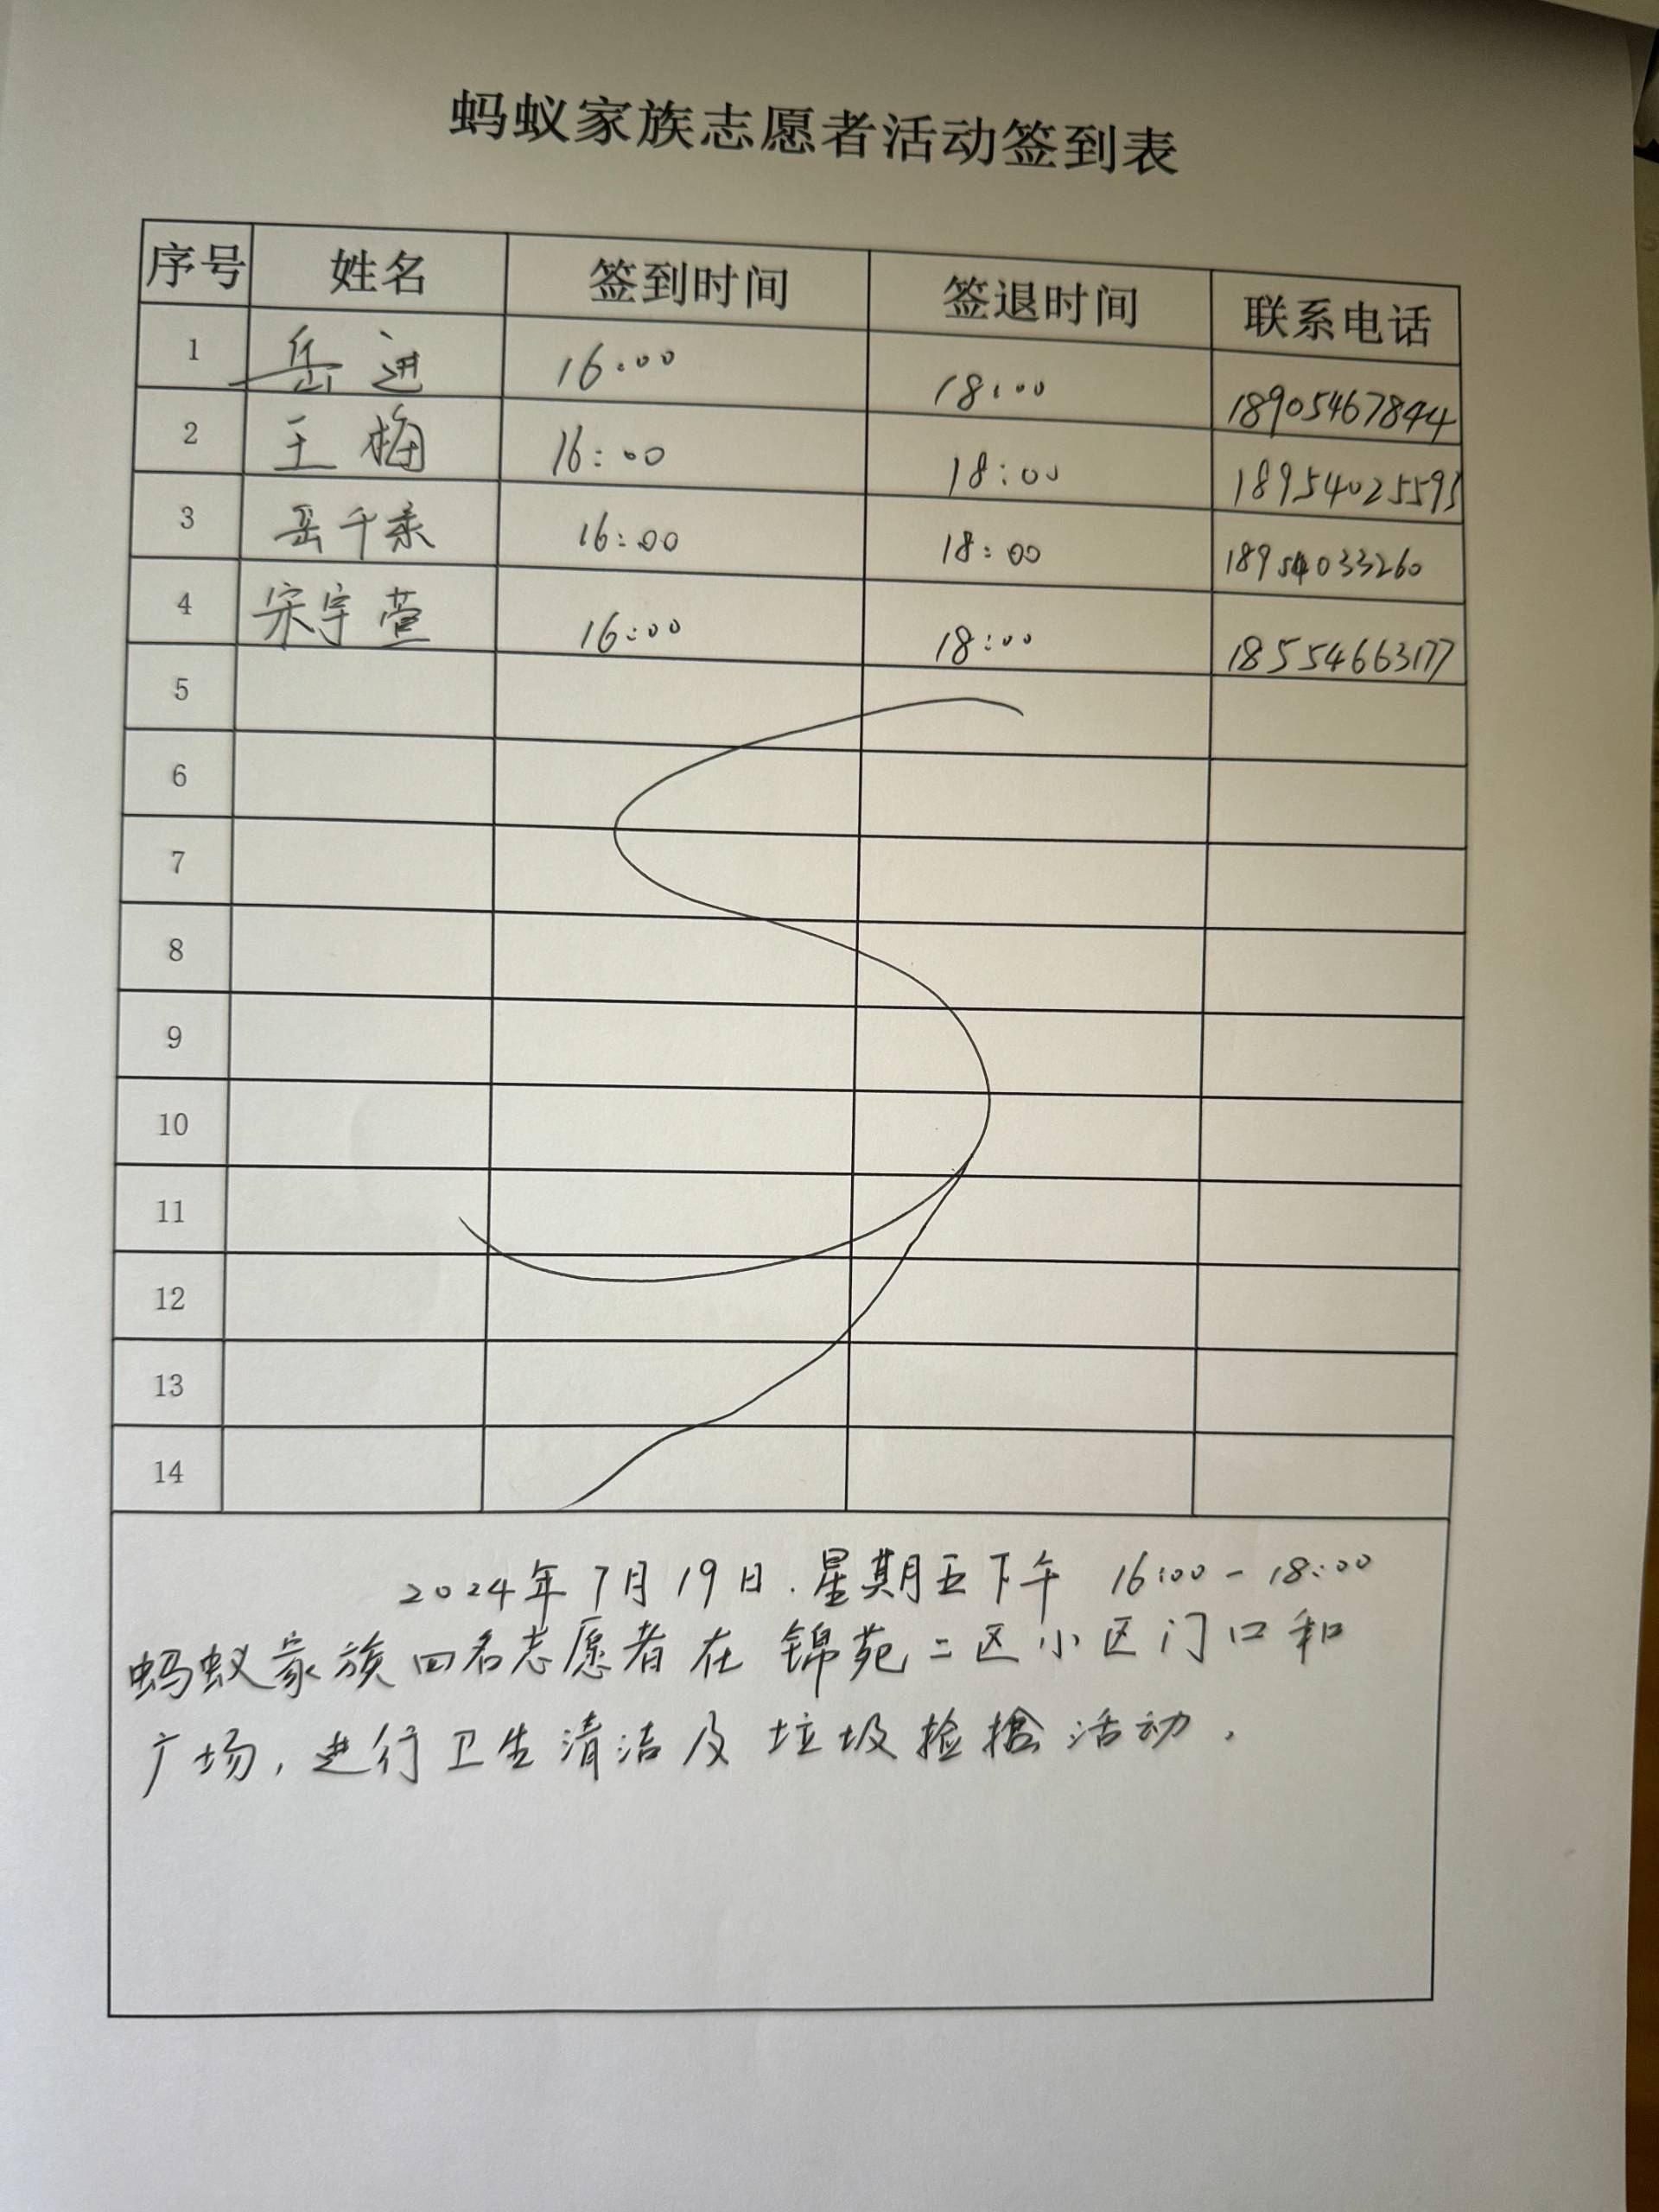 蚂蚁家族志愿者活动签到表
序号 姓名 签到时间 签退时间 联系电话
1 岳进 16:00 18:00 18905467844
2 王梅 16:00 18:00 18954025593
3 岳千乘 16:00 18:00 18954033260
4 宋宇萱 16:00 18:00 18554663177
5
6
7
8
9
10
11
12
13
14
2024年7月19日.星期五下午 16:00-18:00
蚂蚁家族四名志愿者在锦苑二区小区门口和
广场,进行卫生清洁及垃圾捡拾活动.